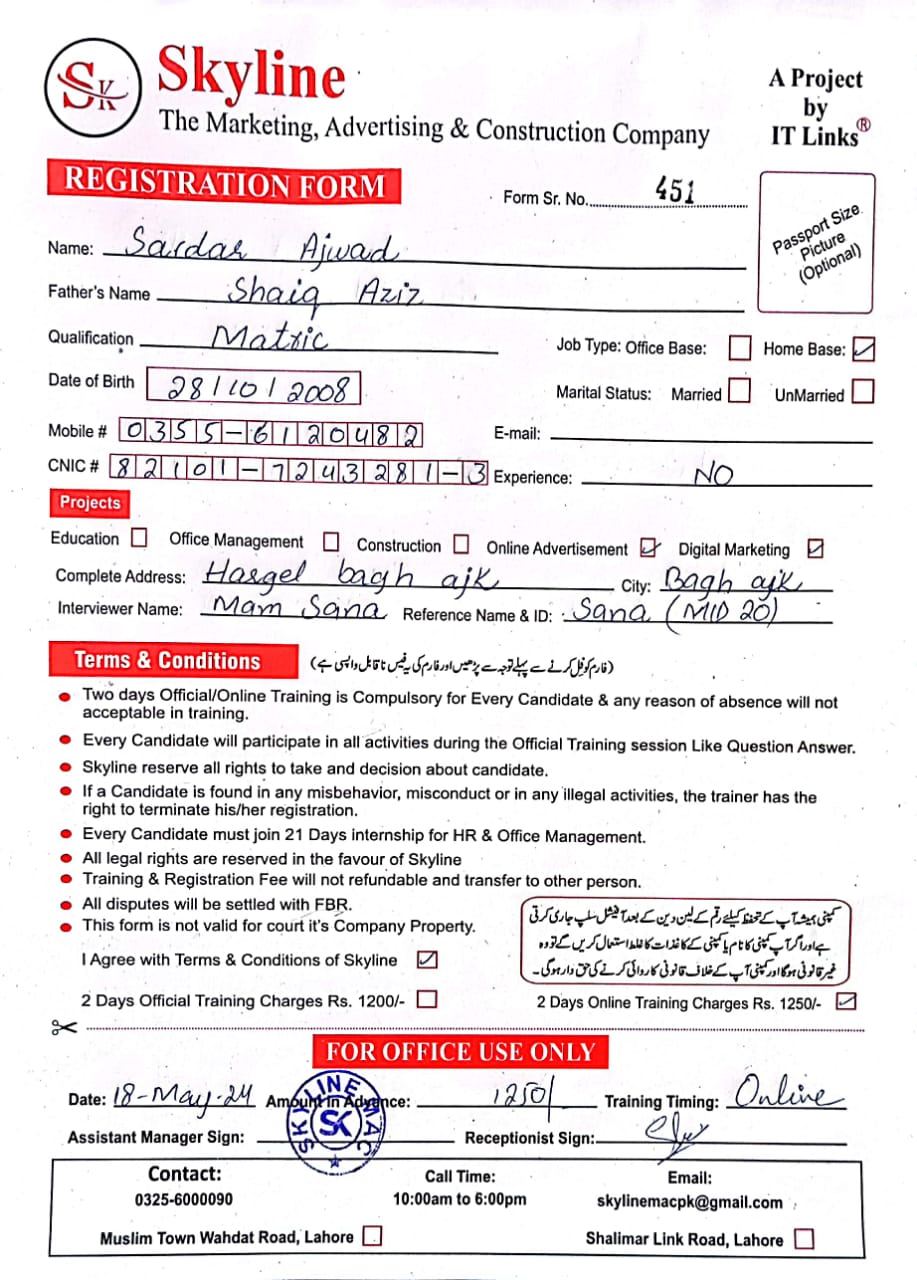 SK Skyline
The Marketing, Advertising & Construction Company
A Project
by
IT Links®
REGISTRATION FORM
Form Sr. No. 451
Passport Size
Picture
(Optional)
Name: Sardar Ajwad
Father's Name Shaiq Aziz
Qualification Matric
Job Type: Office Base: Home Base:
Date of Birth 28/10/2008
Marital Status: Married UnMarried
Mobile # 0355-6120482 E-mail:
CNIC # 82101-7243281-3 Experience: NO
Projects
Education Office Management Construction Online Advertisement Digital Marketing
Complete Address: Hasgel bagh ajk City: Bagh ajk
Interviewer Name: Mam Sana Reference Name & ID: Sana (MID 20)
Terms & Conditions (فارم کو فل کرنے سے پہلے توجہ سے پڑھیں اور فارم کی یہ فیس ناقابل واپسی ہے)
Two days Official/Online Training is Compulsory for Every Candidate & any reason of absence will not
acceptable in training.
Every Candidate will participate in all activities during the Official Training session Like Question Answer.
Skyline reserve all rights to take and decision about candidate.
If a Candidate is found in any misbehavior, misconduct or in any illegal activities, the trainer has the
right to terminate his/her registration.
Every Candidate must join 21 Days internship for HR & Office Management.
All legal rights are reserved in the favour of Skyline
Training & Registration Fee will not refundable and transfer to other person.
All disputes will be settled with FBR.
This form is not valid for court it's Company Property.
کمپنی ہمیشہ آپ کے تحفظ کیلئے رقم کے لین دین کے بعد آفیشل سلپ جاری کرتی
ہے اور اگر آپ کمپنی کا نام یا کمپنی کے کاغذات کا غلط استعمال کریں گے تو وہ
غیر قانونی ہوگا اور کمپنی آپ کے خلاف قانونی کاروائی کرنے کی حق دار ہوگی۔
I Agree with Terms & Conditions of Skyline
2 Days Official Training Charges Rs. 1200/- 2 Days Online Training Charges Rs. 1250/-
FOR OFFICE USE ONLY
Date: 18-May-24 Amount in Advance: 1250/ Training Timing: Online
SKYLINE MAC
SK
Assistant Manager Sign: Receptionist Sign:
Contact: Call Time: Email:
0325-6000090 10:00am to 6:00pm skylinemacpk@gmail.com
Muslim Town Wahdat Road, Lahore Shalimar Link Road, Lahore